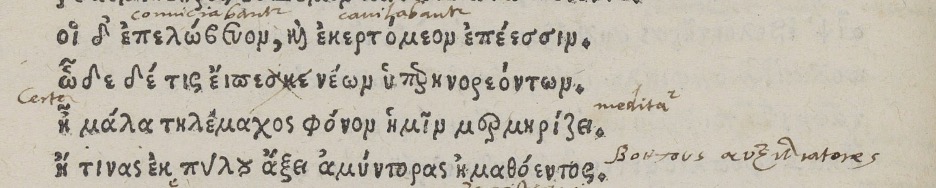 convitiabantr cavillabantr
οἱ δ' ἐπελώβευον, καὶ ἐκερτόμεον ἐπέεσσιν.
ὧδε δέ τις εἴπεσκε νέων ὑπερηνορεόντων.
Certe meditatr
ἦ μάλα τηλέμαχος φόνον ἡμῖν μερμηρίζει.
ἤ τινας ἐκ πύλου ἄξει ἀμύντορας ἠμαθόεντος. βοηθους auxiliatores